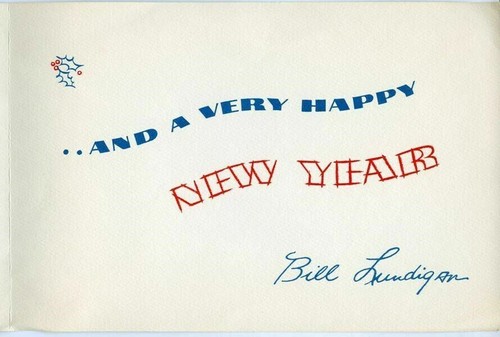 ..AND A VERY HAPPY
NEW YEAR
Bill Lundigan